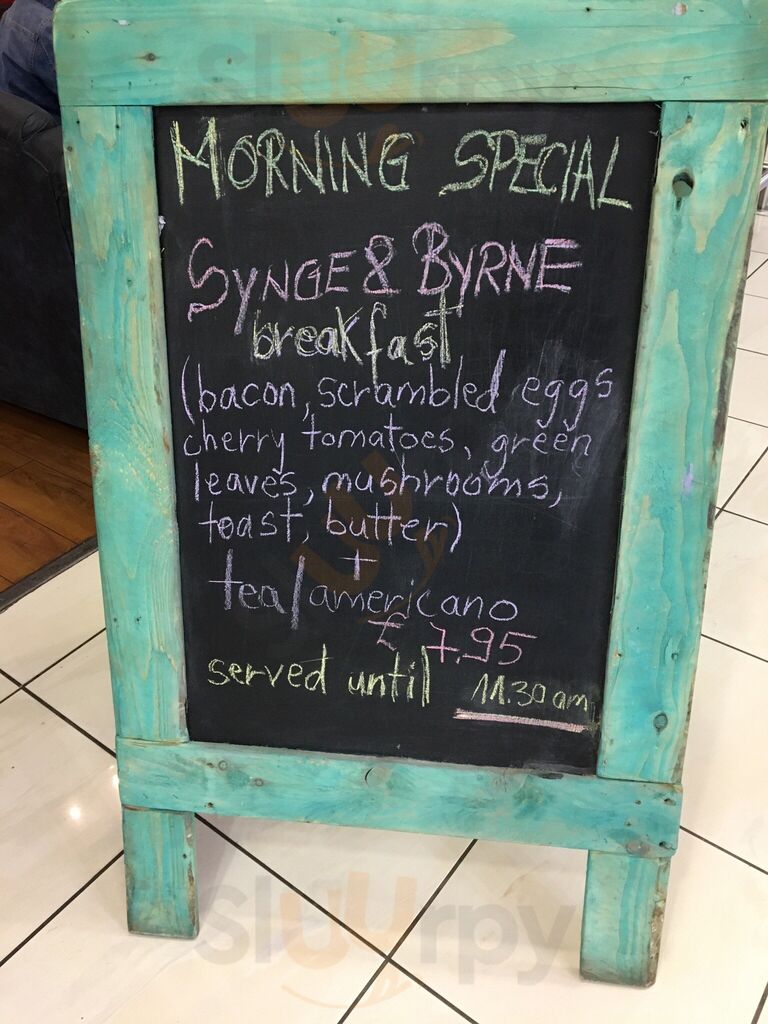 Sluurpy
MORNING SPECIAL
SYNGE & BYRNE
breakfast
(bacon, scrambled eggs
cherry tomatoes, green
leaves, mushrooms,
toast, butter)
+
tea/americano
£ 7.95
served until 11.30 am
Sluurpy